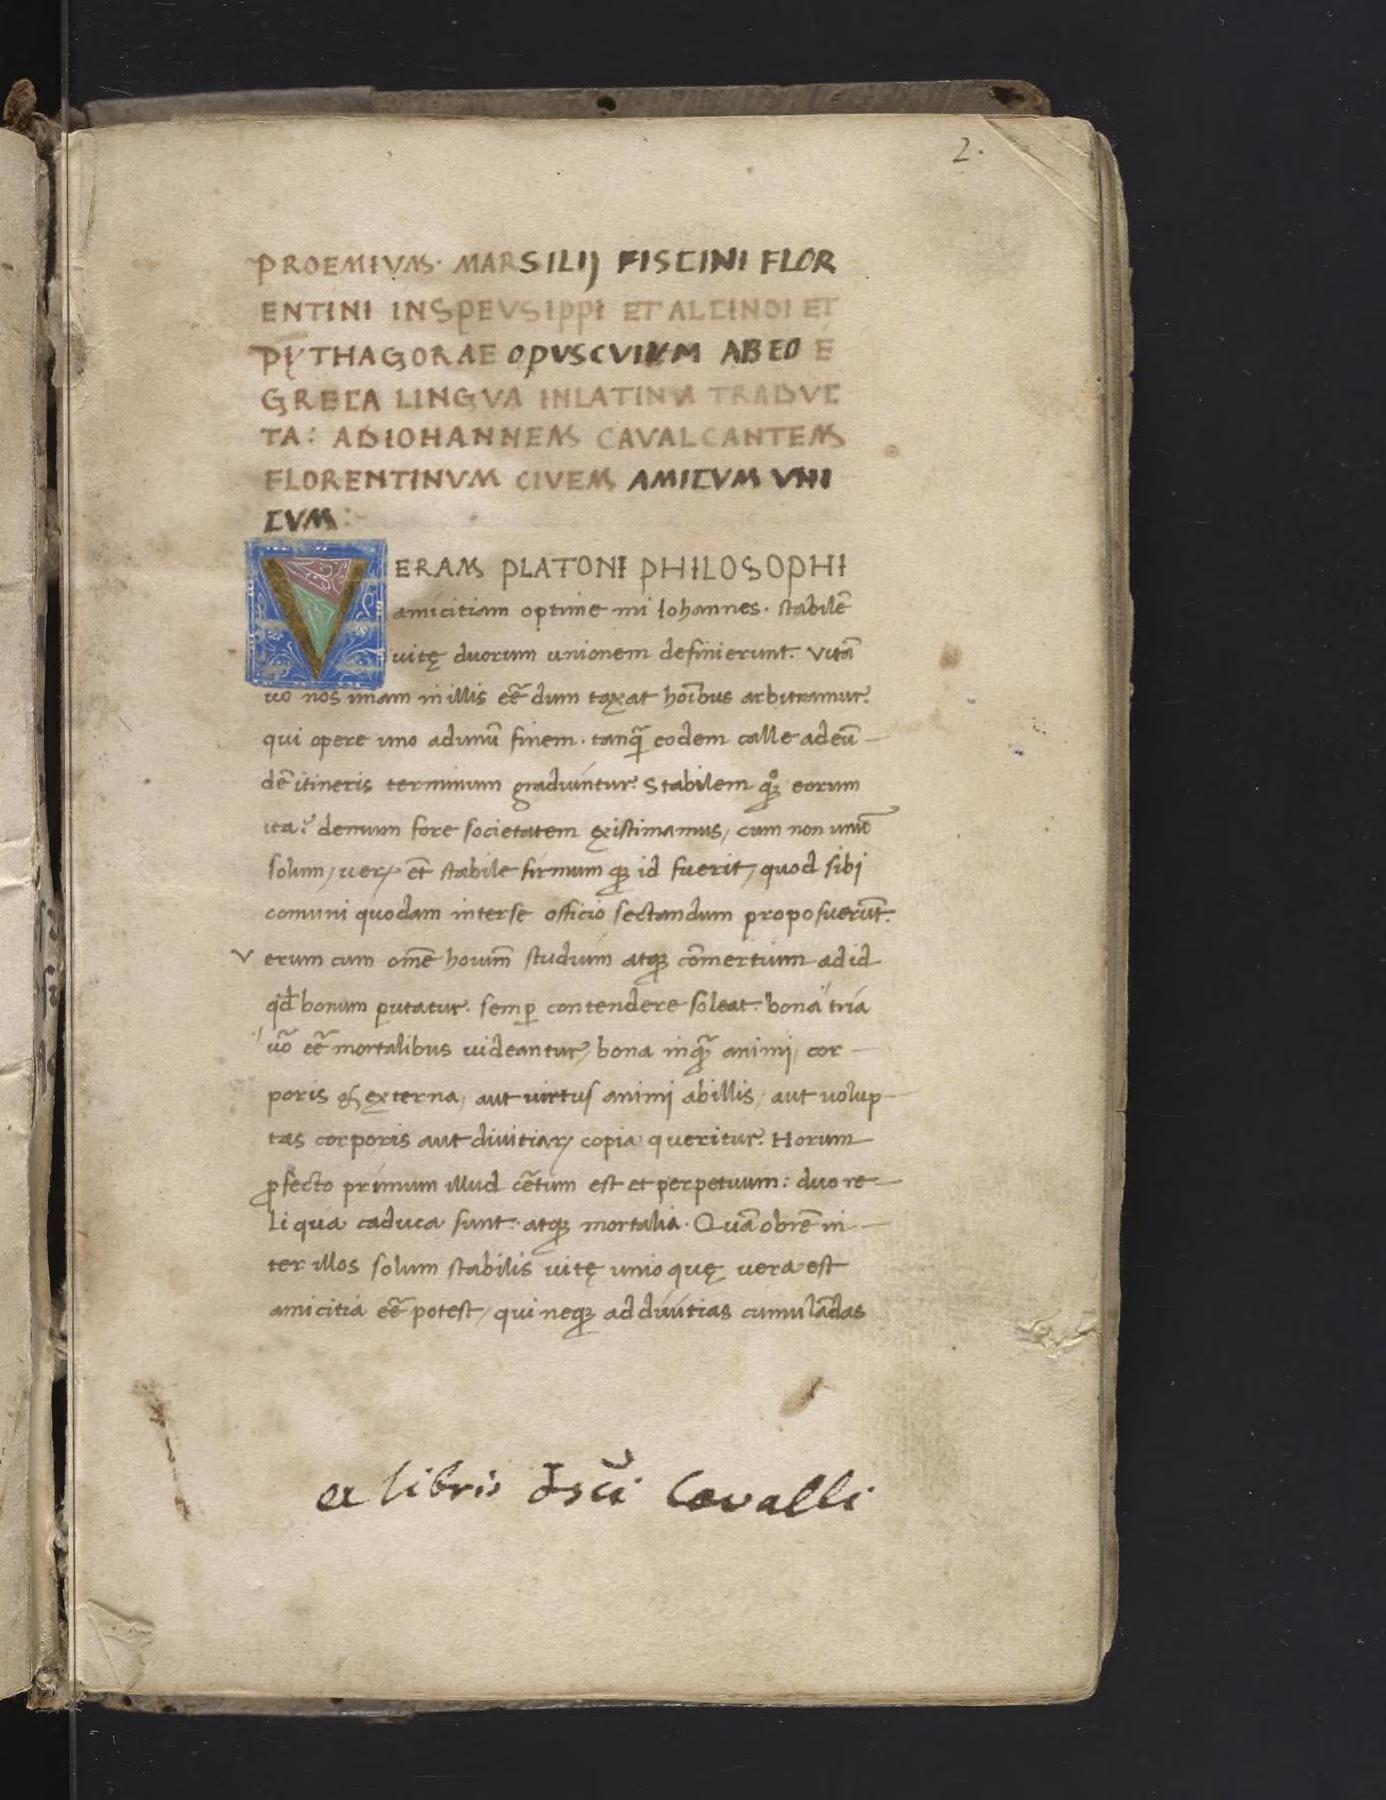 2.
PROEMIVM· MARSILIJ FISCINI FLOR
ENTINI INSPEVSIPPI ET ALCINOI ET
PYTHAGORAE OPVSCVLVM AB EO E
GRECA LINGVA INLATINVM TRADVC
TA: ADIOHANNEM CAVALCANTEM
FLORENTINVM CIVEM AMICVM VNI
CVM:
VERAM PLATONI PHILOSOPHI
amicitiam optime mi Iohannes· stabilē
uitę duorum unionem definierunt. Vitā
uo nos unam in illis eē dum taxat hoībus arbitramur.
qui opere uno adunū finem· tanq̄ eodem calle adeū
dē itineris terminum graduntur. Stabilem qꝫ eorum
demum fore societatem ęxistimamus, cum non unū
solum, uerꝝ et̄ stabile firmum qꝫ id fuerit, quod sibi
comuni quodam interse officio sectandum proposuerūt.
Verum cum omē houım̄ studium atqꝫ cōmertium ad id
qd̄ bonum putatur. semꝑ contendere soleat. bona tria
uō eē mortalibus uideantur, bona inq̄ animi, cor
poris & ęxterna, aut uirtus animi abillis, aut uolup
tas corporis aut diuitiaꝝ copia queritur. Horum
ꝓfecto primum illud cētum est et perpetuum: duo re
liqua caduca sunt. atqꝫ mortalia. Quā obrē in
ter illos solum stabilis uitę unio quę uera est
amicitia eē potest, qui neqꝫ ad diuitias cumulādas
ex libris Cavalli